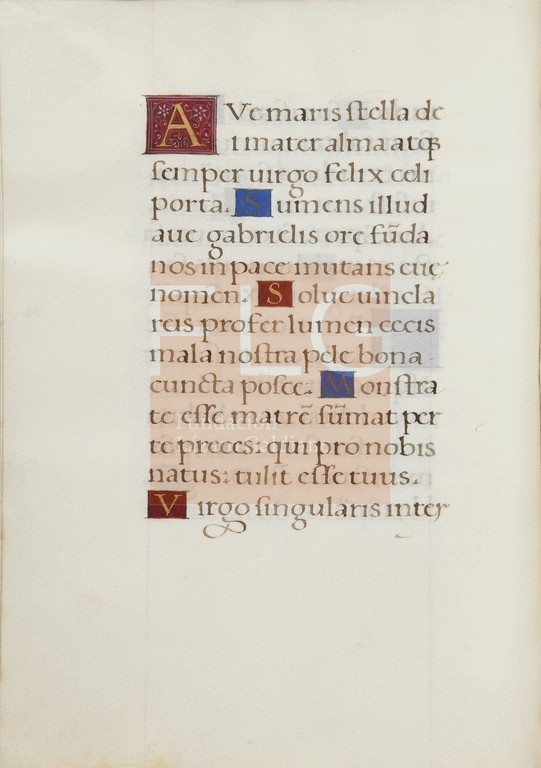 AVe maris ſtella de
i mater alma atqꝫ
ſemper uirgo felix celi
porta. Sumens illud
aue gabrielis ore fūda
nos in pace mutans eue
nomen. Solue uincla
reis profer lumen cecis
mala noſtra pele bona
cuncta poſce. Monſtra
te eſſe matrē ſūmat per
te preces: qui pro nobis
natus: tulit eſſe tuus.
Virgo ſingularis inter
FLG
Fundación